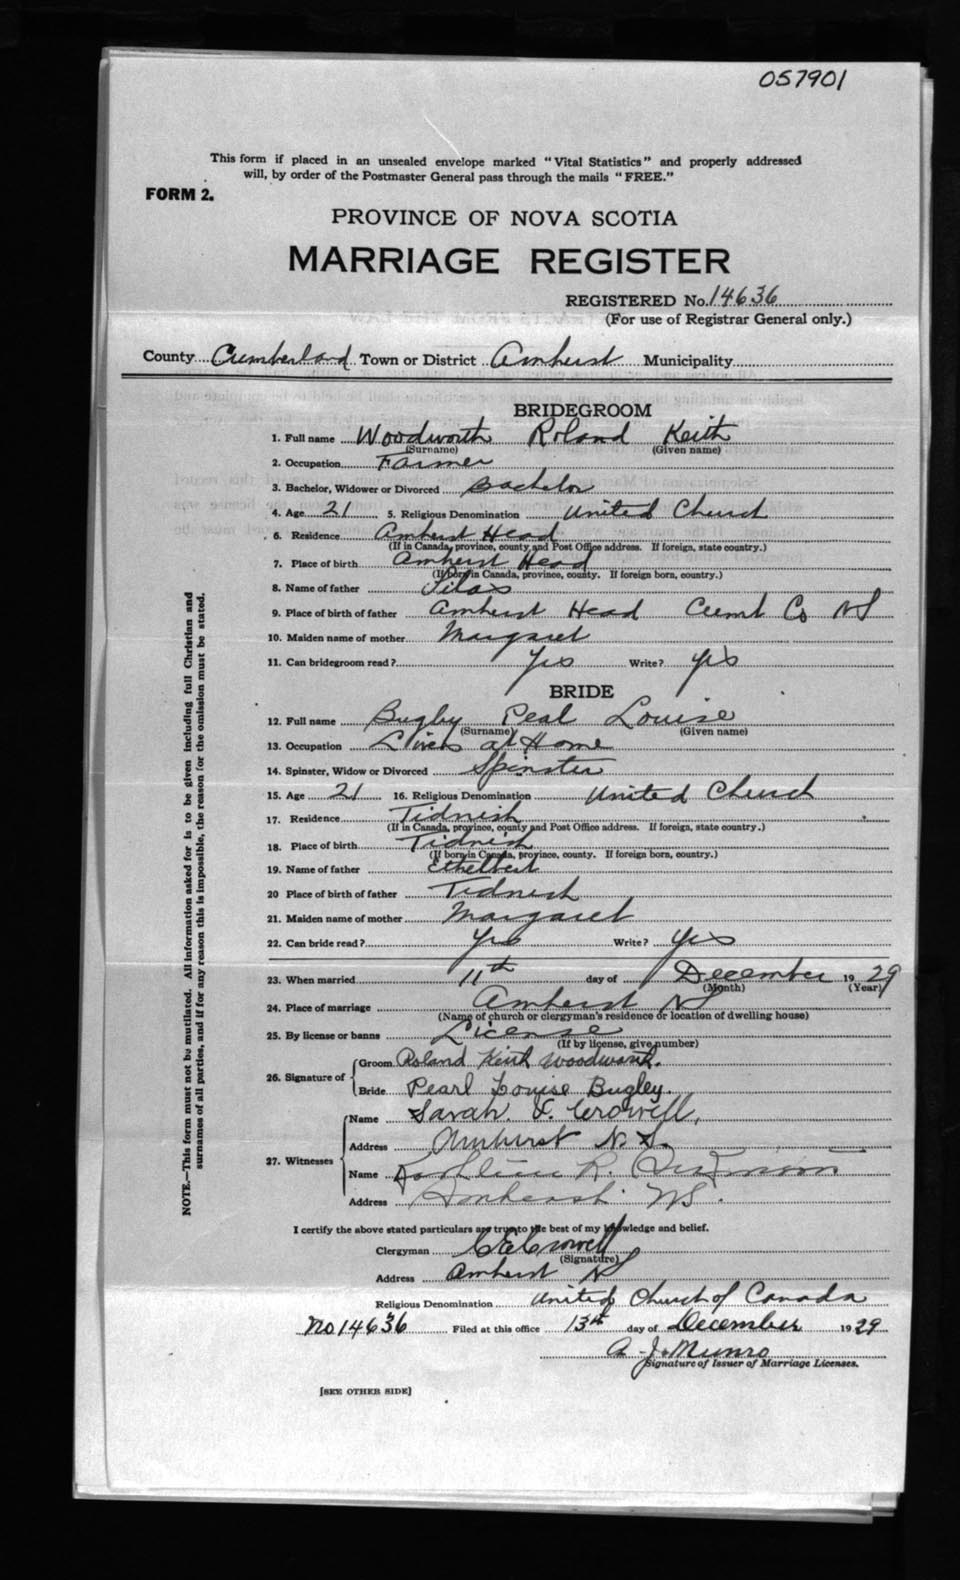 057901
This form if placed in an unsealed envelope marked "Vital Statistics" and properly addressed
will, by order of the Postmaster General pass through the mails "FREE."
FORM 2.
PROVINCE OF NOVA SCOTIA
MARRIAGE REGISTER
REGISTERED No. 14636
(For use of Registrar General only.)
County Cumberland Town or District Amherst Municipality
BRIDEGROOM
1. Full name Woodworth Roland Keith
(Surname) (Given name)
2. Occupation Farmer
3. Bachelor, Widower or Divorced Bachelor
4. Age 21 5. Religious Denomination United Church
6. Residence Amherst Head
(If in Canada, province, county and Post Office address. If foreign, state country.)
7. Place of birth Amherst Head
(If born in Canada, province, county. If foreign born, country.)
8. Name of father Silas
9. Place of birth of father Amherst Head Cumb Co NS
10. Maiden name of mother Margaret
11. Can bridegroom read? Yes Write? Yes
BRIDE
12. Full name Bugby Peal Louise
(Surname) (Given name)
13. Occupation Lives at Home
14. Spinster, Widow or Divorced Spinster
15. Age 21 16. Religious Denomination United Church
17. Residence Tidnish
(If in Canada, province, county and Post Office address. If foreign, state country.)
18. Place of birth Tidnish
(If born in Canada, province, county. If foreign born, country.)
19. Name of father Ethelbert
20 Place of birth of father Tidnish
21. Maiden name of mother Margaret
22. Can bride read? Yes Write? Yes
23. When married 11th day of December 1929
(Month) (Year)
24. Place of marriage Amherst NS
(Name of church or clergyman's residence or location of dwelling house)
25. By license or banns License
(If by license, give number)
26. Signature of Groom Roland Keith Woodworth.
Bride Pearl Louise Bugley.
27. Witnesses Name Sarah F. Crowell,
Address Amherst N.S.
Name R.
Address Amherst NS.
I certify the above stated particulars are true to the best of my knowledge and belief.
Clergyman C E Crowell
(Signature)
Address Amherst NS
Religious Denomination United Church of Canada
No 14636 Filed at this office 13th day of December 1929
A. J. Munro
Signature of Issuer of Marriage Licenses.
[SEE OTHER SIDE]
NOTE.—This form must not be mutilated. All information asked for is to be given including full Christian and
surnames of all parties, and if for any reason this is impossible, the reason for the omission must be stated.